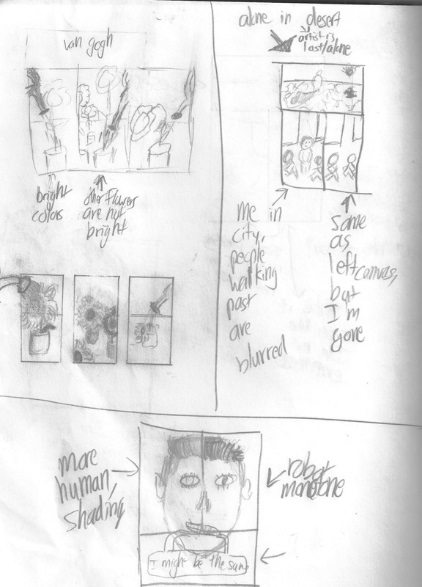 van gogh
bright
colors
other flowers
are not
bright
alone in desert
artist is
lost/alone
me in
city,
people
walking
past
are
blurred
same
as
left canvas,
but
I'm
gone
more
human,
shading
robot
monotone
I might be the same